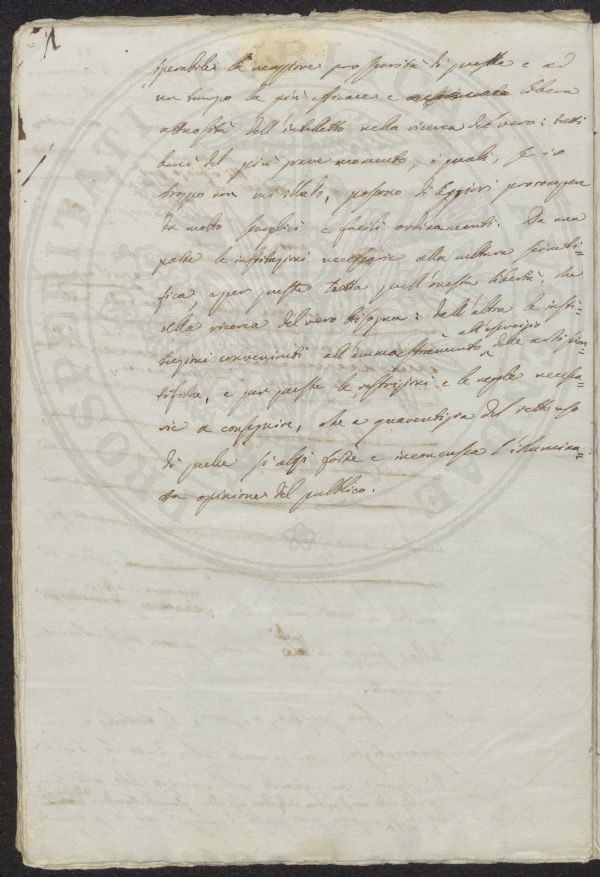 sperabile la maggiore prosperità di queste e ad
un tempo la più efficace e libera
attuosità dell'intelletto nella ricerca del vero: tutti
beni del più grave momento, i quali, se io
troppo non m'illudo, possono di leggieri provenire
da molto semplici e facili ordinamenti. Da una
parte le instituzioni necessarie alla coltura scienti=
fica, e per queste tutta quell'onesta libertà, che
alla ricerca del vero bisogna: dall'altra le insti=
tuzioni convenienti all'ammaestramento all'esercizio delle arti scien=
tifiche, e per queste le restrizioni e le regole necessa=
rie a conseguire, che a guarentigia del retto uso
di quelle si alzi forte e inconcussa l'illumina=
ta opinione del pubblico.
PROSPERITATI PUBLICAE AUGENDAE